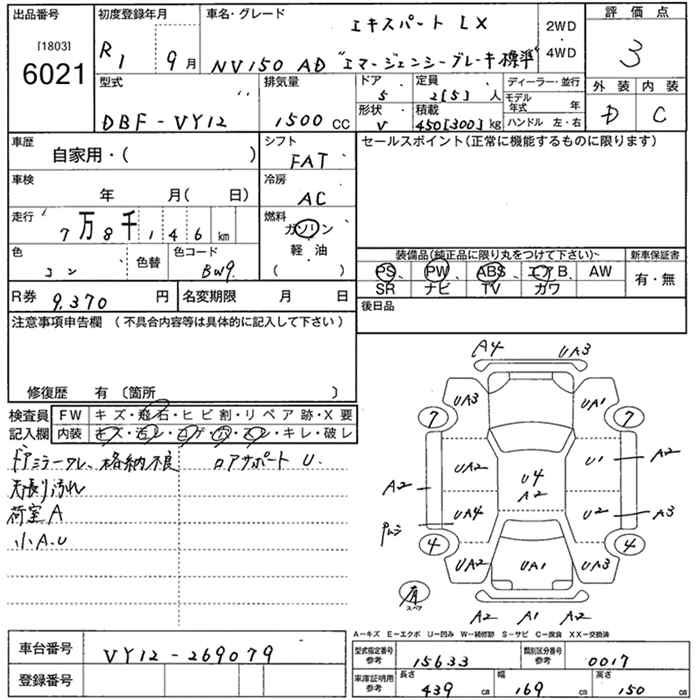 出品番号
[1803]
6021
初度登録年月
R1 9月
車名・グレード
エキスパート LX
NV150 AD "エマージェンシーブレーキ標準"
2WD
・
4WD
評価点
3
外装 内装
D C
型式
DBF-VY12
排気量
1500 CC
ドア
5
定員
2[5]人
形状
V
積載
450[300]kg
ディーラー・並行
モデル年式 年
ハンドル 左・右
車歴
自家用・( )
シフト
FAT
セールスポイント(正常に機能するものに限ります)
車検
年 月( 日)
冷房
AC
走行
7万8千146km
燃料
ガソリン
軽・油
( )
色
コン
色替
色コード
BW9
装備品(純正品に限り丸をつけて下さい)
新車保証書
PS PW ABS エアB AW
SR ナビ TV カワ
有・無
R券
9,370円
名変期限 月 日
後日品
注意事項申告欄(不具合内容等は具体的に記入して下さい)
修復歴 有〔箇所 〕
検査員記入欄
FW キズ・飛石・ヒビ割・リペア跡・X要
内装 キズ・汚レ・コゲ・穴・スレ・キレ・破レ
ドアミラーワレ、格納不良 ロアサポートU.
天張り汚れ
荷室A
小A.U
A4 UA3
UA3 UA1
7 7
UA2 U4 U1 A2
A2 A2
UA4 U2 A3
4 4
UA2 UA1 UA3
有
スペア
A2 A1 A2
A－キズ E－エクボ U－凹み W－補修跡 S－サビ C－腐食 XX－交換済
車台番号
VY12-269079
登録番号
型式指定番号 参考
15633
類別区分番号 参考
0017
車庫証明用 参考
長さ
439cm
幅
169cm
高さ
150cm